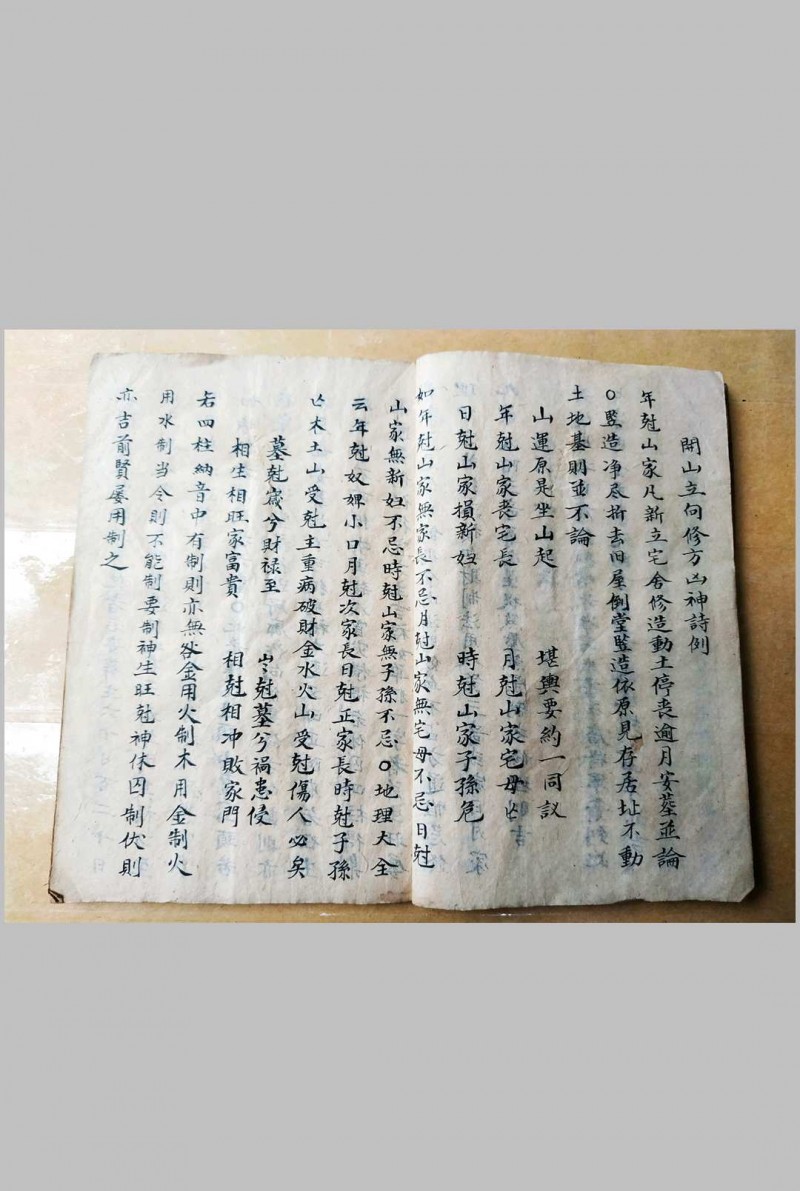 開山立向修方凶神詩例
年尅山家凡新立宅舍修造動土停喪逾月安塟並論
〇竪造净尽拆去旧屋倒堂竪造依原見存居址不動
土地基則並不論
山運原是坐山起 堪輿要約一同議
年尅山家喪宅長 月尅山家宅母凶
日尅山家損新妇 時尅山家子孫危
如年尅山家無家長不忌月尅山家無宅母不忌日尅
山家無新妇不忌時尅山家無子孫不忌〇地理大全
云年尅奴婢小口月尅次家長日尅正家長時尅子孫
木土山受尅主重病破財金水火山受尅傷人必矣
墓尅嵗兮財禄至 尅墓兮禍患侵
相生相旺家富貴 相尅相冲敗家門
若四柱納音中有制則亦無咎金用火制木用金制火
用水制当令則不能制要制神生旺尅神休囚制伏則
亦吉前賢屡用制之